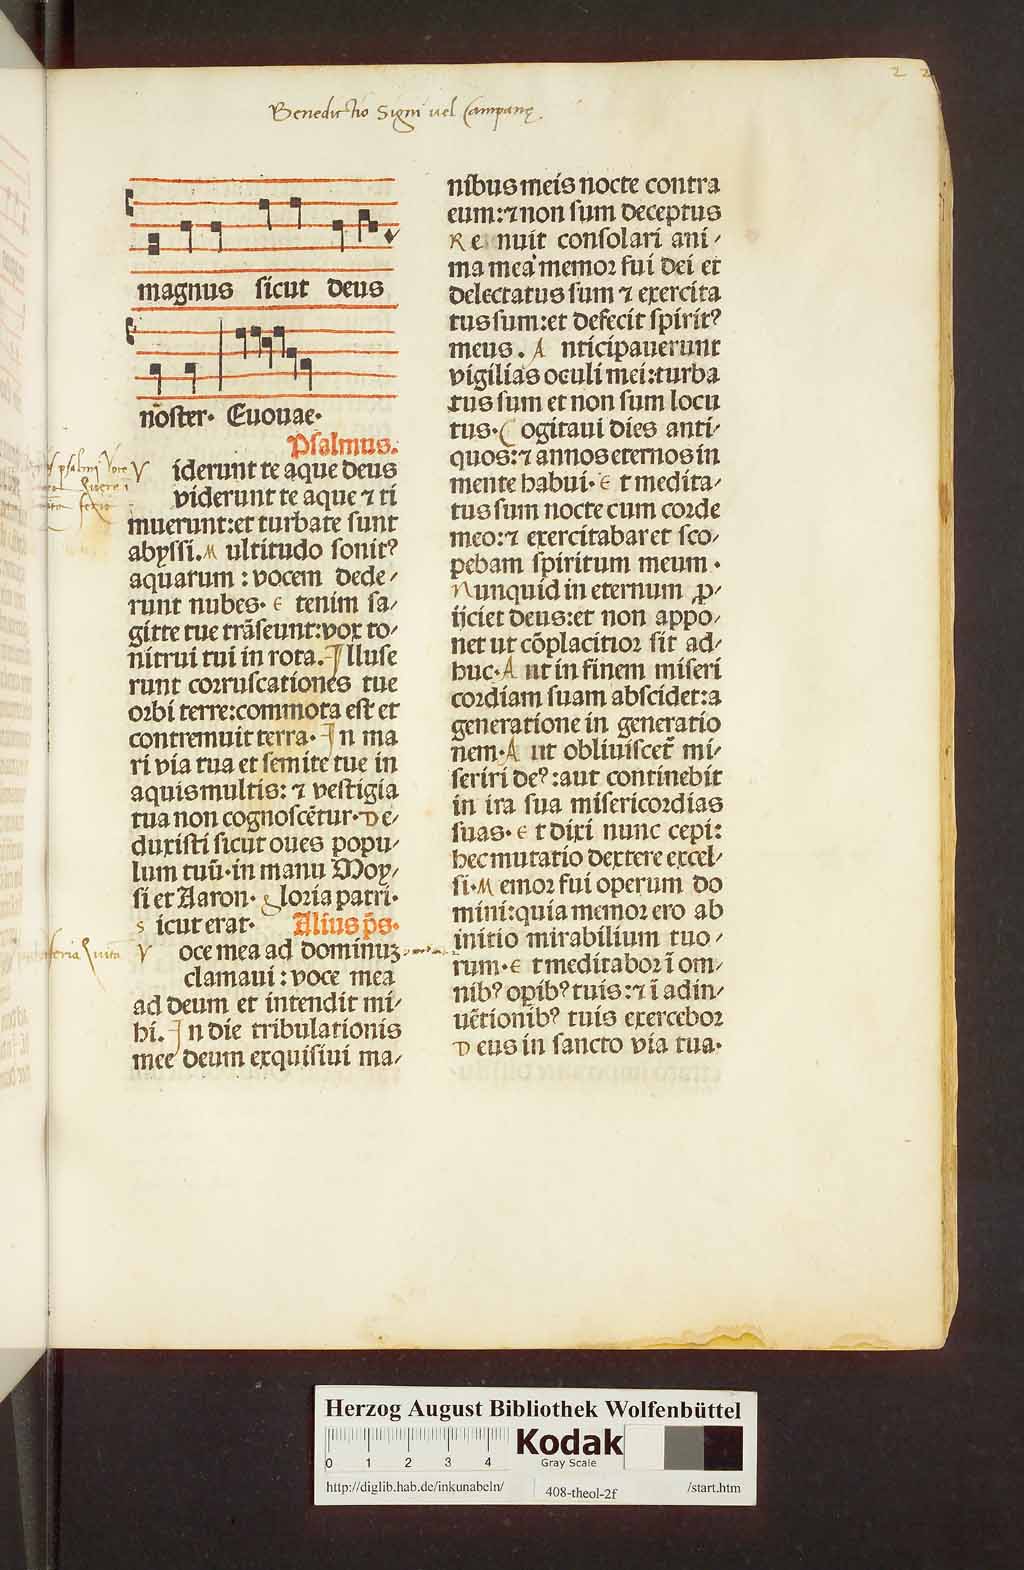 2 2
Benedictio Signi vel Campanę.
magnus sicut deus
nōster· Euouae·
Psalmus.
Viderunt te aque deus
viderunt te aque ⁊ ti
muerunt:et turbate sunt
abyssi. Multitudo sonitꝰ
aquarum : vocem dede⸗
runt nubes· Etenim sa⸗
gitte tue trāseunt:vox to⸗
nitrui tui in rota. Illuse
runt corruscationes tue
orbi terre:commota est et
contremuit terra· In ma
ri via tua et semite tue in
aquis multis: ⁊ vestigia
tua non cognoscētur· De⸗
duxisti sicut oues popu⸗
lum tuū·in manu Moy⸗
si et Aaron· gloria patri·
sicut erat· Alius p̄s·
Voce mea ad dominuꝫ
clamaui : voce mea
ad deum et intendit mi⸗
hi. In die tribulationis
mee deum exquisiui ma⸗
nibus meis nocte contra
eum:⁊ non sum deceptus
Renuit consolari ani⸗
ma mea memor fui dei et
delectatus sum ⁊ exercita
tus sum:et defecit spiritꝰ
meus. Anticipauerunt
vigilias oculi mei:turba
tus sum et non sum locu
tus· Cogitaui dies anti⸗
quos:⁊ annos eternos in
mente habui· Et medita⸗
tus sum nocte cum corde
meo:⁊ exercitabar et sco⸗
pebam spiritum meum·
Nunquid in eternum ꝓ⸗
ijciet deus:et non appo⸗
net ut cōplacitior sit ad⸗
huc· Aut in finem miseri
cordiam suam abscidet:a
generatione in generatio
nem· Aut obliuiscet̄ mi⸗
seriri deꝰ:aut continebit
in ira sua misericordias
suas· Et dixi nunc cepi:
hec mutatio dextere excel⸗
si· Memor fui operum do
mini:quia memor ero ab
initio mirabilium tuo⸗
rum· Et meditabor ī om⸗
nibꝰ opibꝰ tuis:⁊ ī adin⸗
uētionibꝰ tuis exercebor
Deus in sancto via tua·
Herzog August Bibliothek Wolfenbüttel
0 1 2 3 4
Kodak
Gray Scale
http://diglib.hab.de/inkunabeln/ 408-theol-2f /start.htm